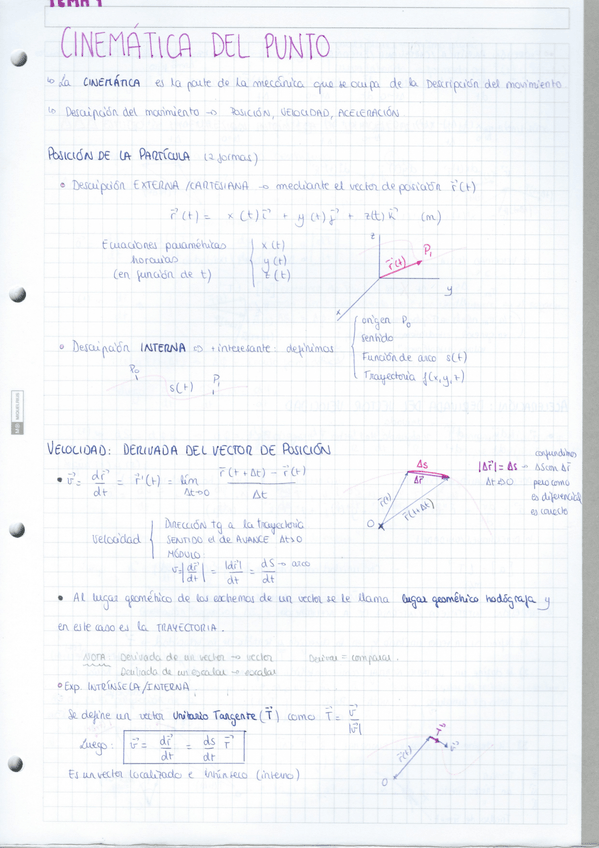 TEMA 1
CINEMÁTICA DEL PUNTO
La CINEMÁTICA es la parte de la mecánica que se ocupa de la Descripción del movimiento.
Descripción del movimiento → POSICIÓN, VELOCIDAD, ACELERACIÓN.
POSICIÓN DE LA PARTÍCULA (2 formas)
• Descripción EXTERNA/CARTESIANA → mediante el vector de posición r⃗(t)
r⃗(t) = x(t)i⃗ + y(t)j⃗ + z(t)k⃗ (m)
Ecuaciones paramétricas
horarias
(en función de t)
x(t)
y(t)
z(t)
z
P₁
r⃗(t)
y
x
• Descripción INTERNA ⇨ + interesante: definimos
origen P₀
sentido
Función de arco s(t)
Trayectoria f(x,y,t)
P₀
s(t)
P₁
VELOCIDAD: DERIVADA DEL VECTOR DE POSICIÓN
• v⃗ = dr⃗/dt = r⃗'(t) = lím Δt→0 (r⃗(t+Δt) − r⃗(t))/Δt
Δs
Δr⃗
r⃗(t)
r⃗(t+Δt)
O
|Δr⃗| = Δs
Δt→0
confundimos
Δs con Δr⃗
pero como
es diferencial
es correcto
Velocidad
DIRECCIÓN tg a la trayectoria
SENTIDO el de AVANCE Δt>0
MÓDULO
v=|dr⃗/dt| = |dr⃗|/dt = dS/dt → arco
• Al lugar geométrico de los extremos de un vector se le llama lugar geométrico hodógrafa y
en este caso es la TRAYECTORIA.
NOTA Derivada de un vector → vector
Derivar = comparar.
Derivada de un escalar → escalar
• Exp. INTRÍNSECA/INTERNA
Se define un vector Unitario Tangente (T⃗) como T⃗ = v⃗/|v⃗|
Luego: v⃗ = dr⃗/dt = ds/dt T⃗
Es un vector localizado e intrínseco (interno)
r⃗(t)
T⃗
v⃗
O